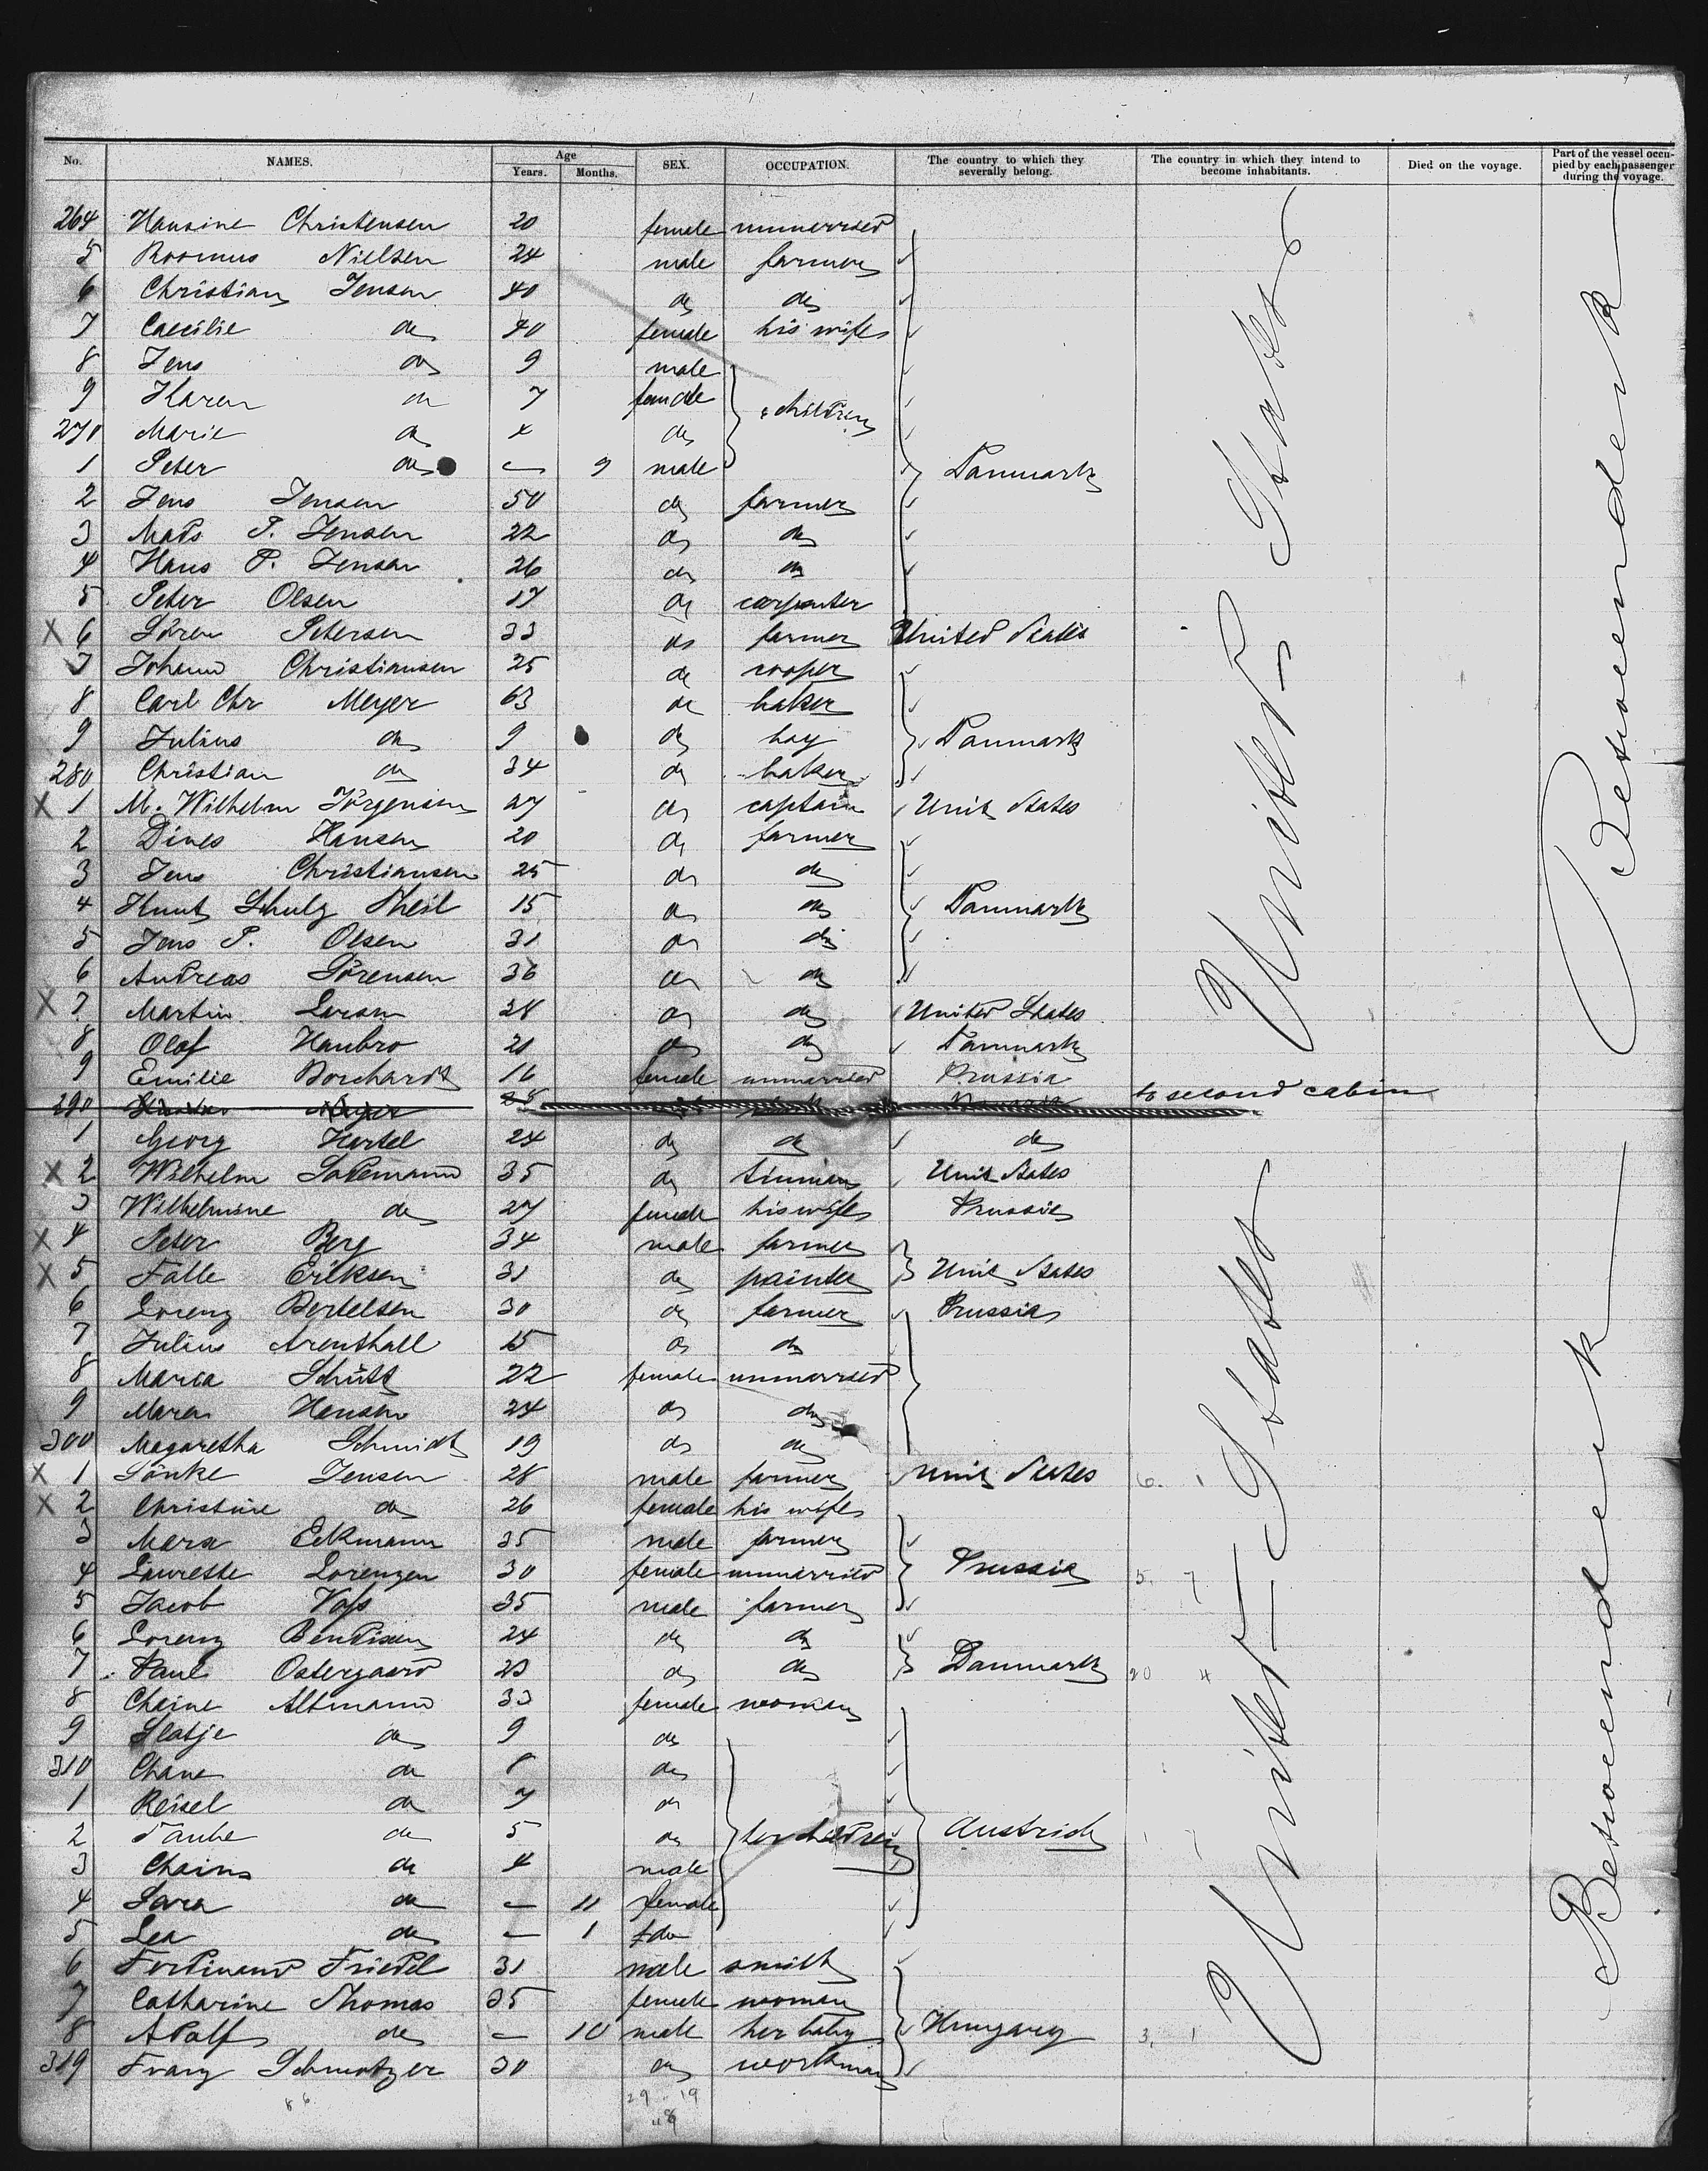 No. NAMES. Age Years. Months. SEX. OCCUPATION. The country to which they severally belong. The country in which they intend to become inhabitants. Died on the voyage. Part of the vessel occupied by each passenger during the voyage.
264 Hansine Christensen 20 female unmarried
5 Rasmus Nielsen 24 male farmer
6 Christian Jensen 40 do do
7 Caecilie do 40 female his wife
8 Jens do 9 male
9 Karen do 7 female children
270 Marie do 4 do
1 Peter do — 9 male Danmark
2 Jens Jensen 50 do farmer
3 Mads P. Jensen 22 do do
4 Hans P. Jensen 26 do do
5 Peter Olsen 17 do carpenter
X 6 Sören Petersen 33 do farmer United States
7 Johann Christiansen 25 do cooper
8 Carl Chr Meyer 63 do baker
9 Julius do 9 do boy Danmark
280 Christian do 34 do baker
X 1 M. Wilhelm Jörgensen 27 do captain Unit States
2 Dines Hansen 20 do farmer
3 Jens Christiansen 25 do do
4 Knut Schulz Theil 15 do do Danmark
5 Jens P. Olsen 31 do do
6 Andreas Sörensen 36 do do
X 7 Martin Larsen 28 do do United States
8 Olaf Haubro 21 do do Danmark
9 Emilie Borchardt 16 female unmarried Prussia
290 Meyer to second cabin
1 Georg Hertel 24 do do do
X 2 Wilhelm Lademann 35 do tinman Unit States
3 Wilhelmine do 27 female his wife Prussia
X 4 Peter Berg 34 male farmer
X 5 Falle Eriksen 31 do painter Unit States
6 Lorenz Bertelsen 30 do farmer Prussia
7 Julius Arenthall 15 do do
8 Maria Schütt 22 female unmarried
9 Maren Hansen 24 do do
300 Magaretha Schmidt 19 do do
X 1 Sönke Jensen 28 male farmer Unit States 6. 1
X 2 Christine do 26 female his wife
3 Marx Eckmann 35 male farmer
4 Laurette Lorenzen 30 female unmarried Prussia 5. 7
5 Jacob Voss 35 male farmer
6 Lorenz Bendixen 24 do do
7 Paul Ostergaard 23 do do Danmark 20 4
8 Cheine Altmann 33 female woman
9 Slatje do 9 do
310 Chane do 8 do
1 Reisel do 7 do
2 Taube do 5 do her children Austria 1 7
3 Chaim do 4 male
4 Sara do — 11 female
5 Lea do — 1 do
6 Ferdinand Friedel 31 male smith
7 Catharine Thomas 35 female woman
8 Adolf do — 10 male her baby Hungary 3. 1
319 Franz Schmotzer 30 do workman
United States
Betweendeck
United States
Betweendeck
86
29 19
48